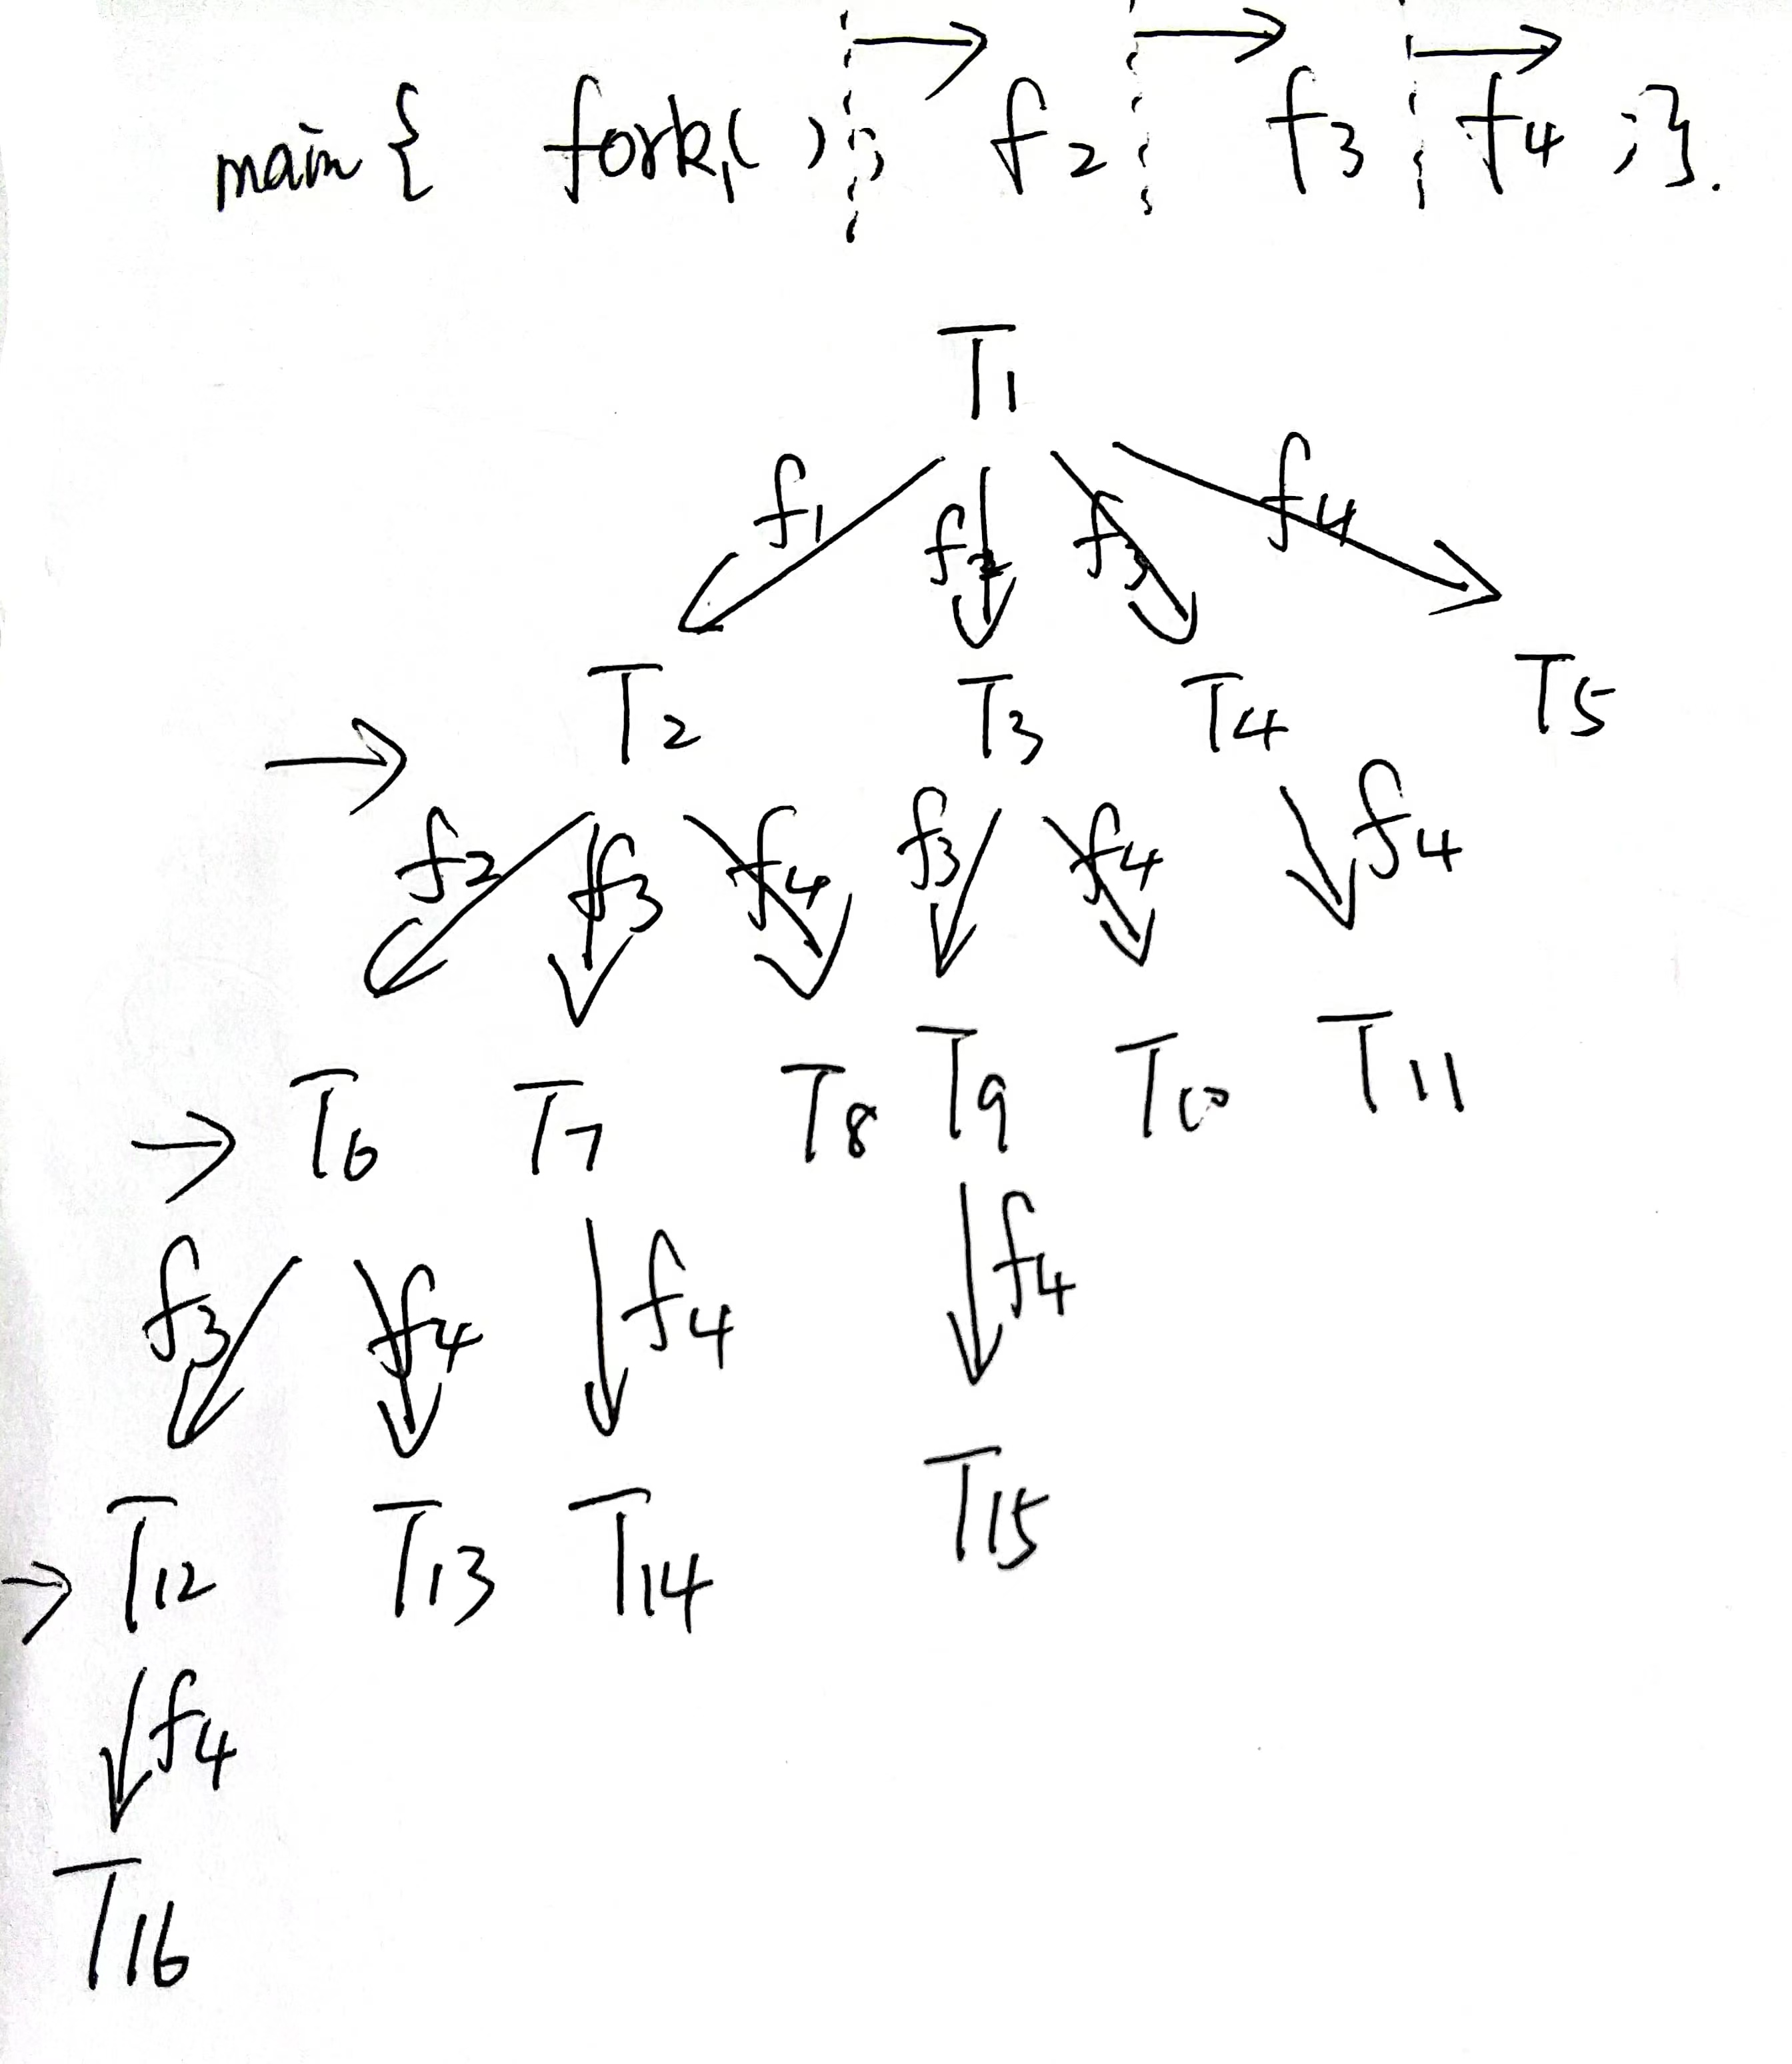 main { fork1( ); f2 f3 f4 ;}.
T1
f1 f2 f3 f4
T2 T3 T4 T5
f2 f3 f4 f3 f4 f4
T6 T7 T8 T9 T10 T11
f3 f4 f4 f4
T12 T13 T14 T15
f4
T16